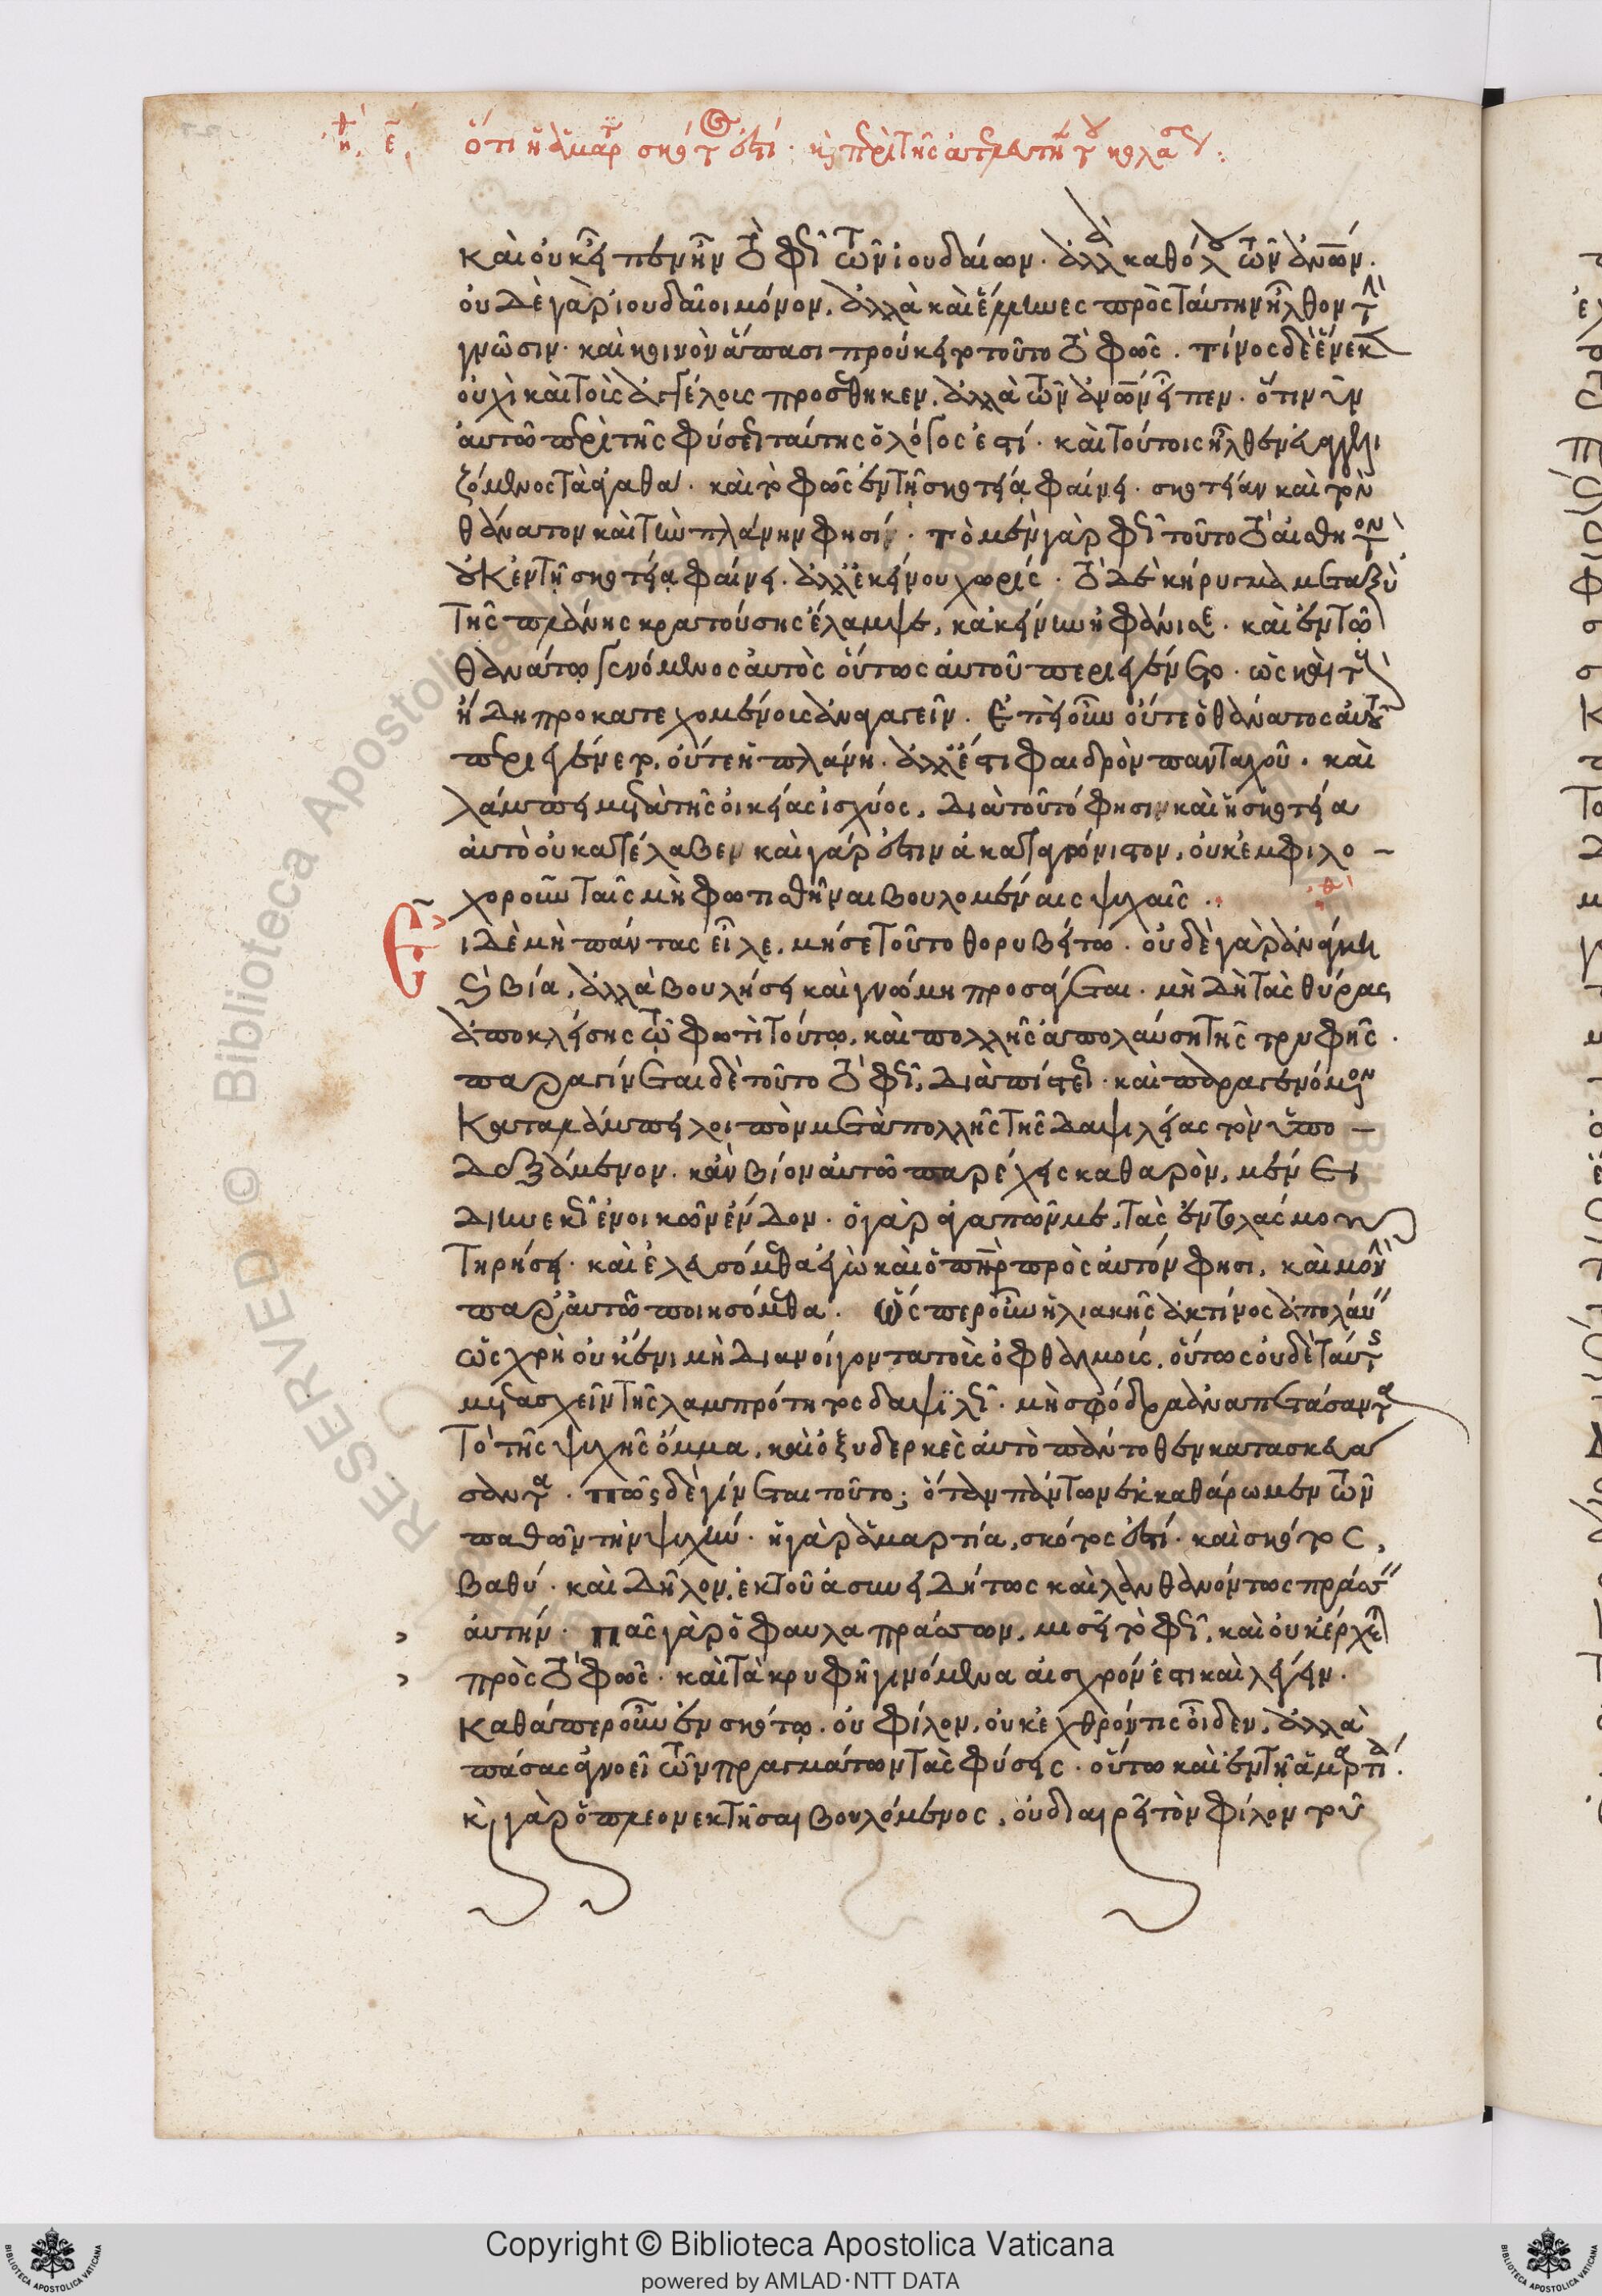 ὅτι ἡ ἁμαρτία σκότος ἐστί· καὶ περὶ τῆς
καὶ οὐκ εἶπεν ἦν τὸ φῶς τῶν ἰουδαίων· ἀλλὰ καθόλου τῶν ἀνων·
οὐδὲ γὰρ ἰουδαῖοι μόνον, ἀλλὰ καὶ ἕλληνες πρὸς ταύτην ἦλθον τὴν
γνῶσιν· καὶ κοινὸν ἅπασι προύκειτο τοῦτο τὸ φῶς. τίνος δὲ ἕνεκεν
οὐχὶ καὶ τοῖς ἀγγέλοις προσέθηκεν, ἀλλὰ τῶν ἀνων εἶπεν· ὅτι νῦν
αὐτῶ περὶ τῆς φύσεως ταύτης ὁ λόγος ἐστί· καὶ τούτοις ἦλθεν εὐαγγελι
ζόμενος τὰ ἀγαθά· καὶ τὸ φῶς ἐν τῆ σκοτία φαίνει· σκοτίαν καὶ τὸν
θάνατον καὶ τὴν πλάνην φησίν· τὸ μὲν γὰρ φῶς τοῦτο τὸ αἰσθητὸν
οὐκ ἐν τῆ σκοτεία φαίνει. ἀλλ' ἐκείνου χωρίς· τὸ δὲ κήρυγμα μεταξὺ
τῆς πλάνης κρατούσης ἔλαμψε, κἀκείνην ἠφάνισε· καὶ ἐν τῶ
θανάτω γενόμενος αὐτὸς οὕτως αὐτοῦ περιεγένετο· ὡς καὶ τοὺς
ἤδη προκατεχομένοις ἀναγαγεῖν. Ἐπεὶ οὖν οὔτε ὁ θάνατος αὐτοῦ
περιεγένετο, οὔτε ἡ πλάνη. ἀλλ' ἔστι φαιδρὸν πανταχοῦ· καὶ
λάμπει μετὰ τῆς οἰκείας ἰσχύος, διὰ τοῦτό φησιν καὶ ἡ σκοτεία
αὐτὸ οὐ κατέλαβεν καὶ γάρ ἐστιν ἀκαταγώνιστον, οὐκ ἐμφιλο-
χοροῦν ταῖς μὴ φωτισθῆναι βουλομέναις ψυχαῖς.
Εἰ δὲ μὴ πάντας εἷλε, μή σε τοῦτο θορυβείτω· οὐδὲ γὰρ ἀνάγκη
βία, ἀλλὰ βουλήσει καὶ γνώμη προσάγεται· μὴ δὴ τὰς θύρας
ἀποκλείσης τῶ φωτὶ τούτω, καὶ πολλῆς ἀπολαύση τῆς τρυφῆς·
παραγίνεται δὲ τοῦτο τὸ φῶς, διὰ πίστεως· καὶ παραγενόμενον
καταλάμπει λοιπὸν μετὰ πολλῆς τῆς δαψιλείας τὸν ὑπο-
δεξάμενον. κἂν βίον αὐτῶ παρέχης καθαρὸν, μένει
διηνεκῶς ἐνοικῶν ἔνδον· ὁ γὰρ ἀγαπῶν με, τὰς ἐντολάς μου
τηρήσει· καὶ ἐλευσόμεθα ἐγὼ καὶ ὁ πηρ πρὸς αὐτόν φησι, καὶ μονὴν
παρ' αὐτῶ ποιησόμεθα. ὥσπερ οὖν ἡλιακῆς ἀκτίνος ἀπολαῦσαι
ὡς χρὴ οὐκ ἔνι μὴ διανοίγοντα τοὺς ὀφθαλμούς, οὕτως οὐδὲ ταύτης
μετασχεῖν τῆς λαμπρότητος δαψιλῶς· μὴ σφόδρα ἀναπετάσαντα
τὸ τῆς ψυχῆς ὄμμα, καὶ ὀξυδερκὲς αὐτὸ πάντοθεν κατασκευά
σαντα· πῶς δὲ γίνεται τοῦτο; ὅταν πάντων ἐκκαθάρωμεν τῶν
παθῶν τὴν ψυχήν· ἡ γὰρ ἁμαρτία, σκότος ἐστί· καὶ σκότος,
βαθύ· καὶ δῆλον, ἐκ τοῦ ἀσυνειδήτως καὶ λανθανόντως πράττειν
αὐτήν· πᾶς γὰρ ὁ φαῦλα πράσσων, μισεῖ τὸ φῶς, καὶ οὐκ ἔρχεται
πρὸς τὸ φῶς· καὶ τὰ κρυφῆ γινόμενα αἰσχρόν ἐστι καὶ λέγειν.
καθάπερ οὖν ἐν σκότω, οὐ φίλον, οὐκ ἐχθρόν τις οἶδεν, ἀλλὰ
πάσας ἀγνοεῖ τῶν πραγμάτων τὰς φύσεις· οὕτω καὶ ἐν τῆ ἁμαρτία.
καὶ γὰρ ὁ πλεονεκτῆσαι βουλόμενος, οὐ διαιρεῖ τὸν φίλον τοῦ
RESERVED © Biblioteca Apostolica
Copyright © Biblioteca Apostolica Vaticana
powered by AMLAD·NTT DATA